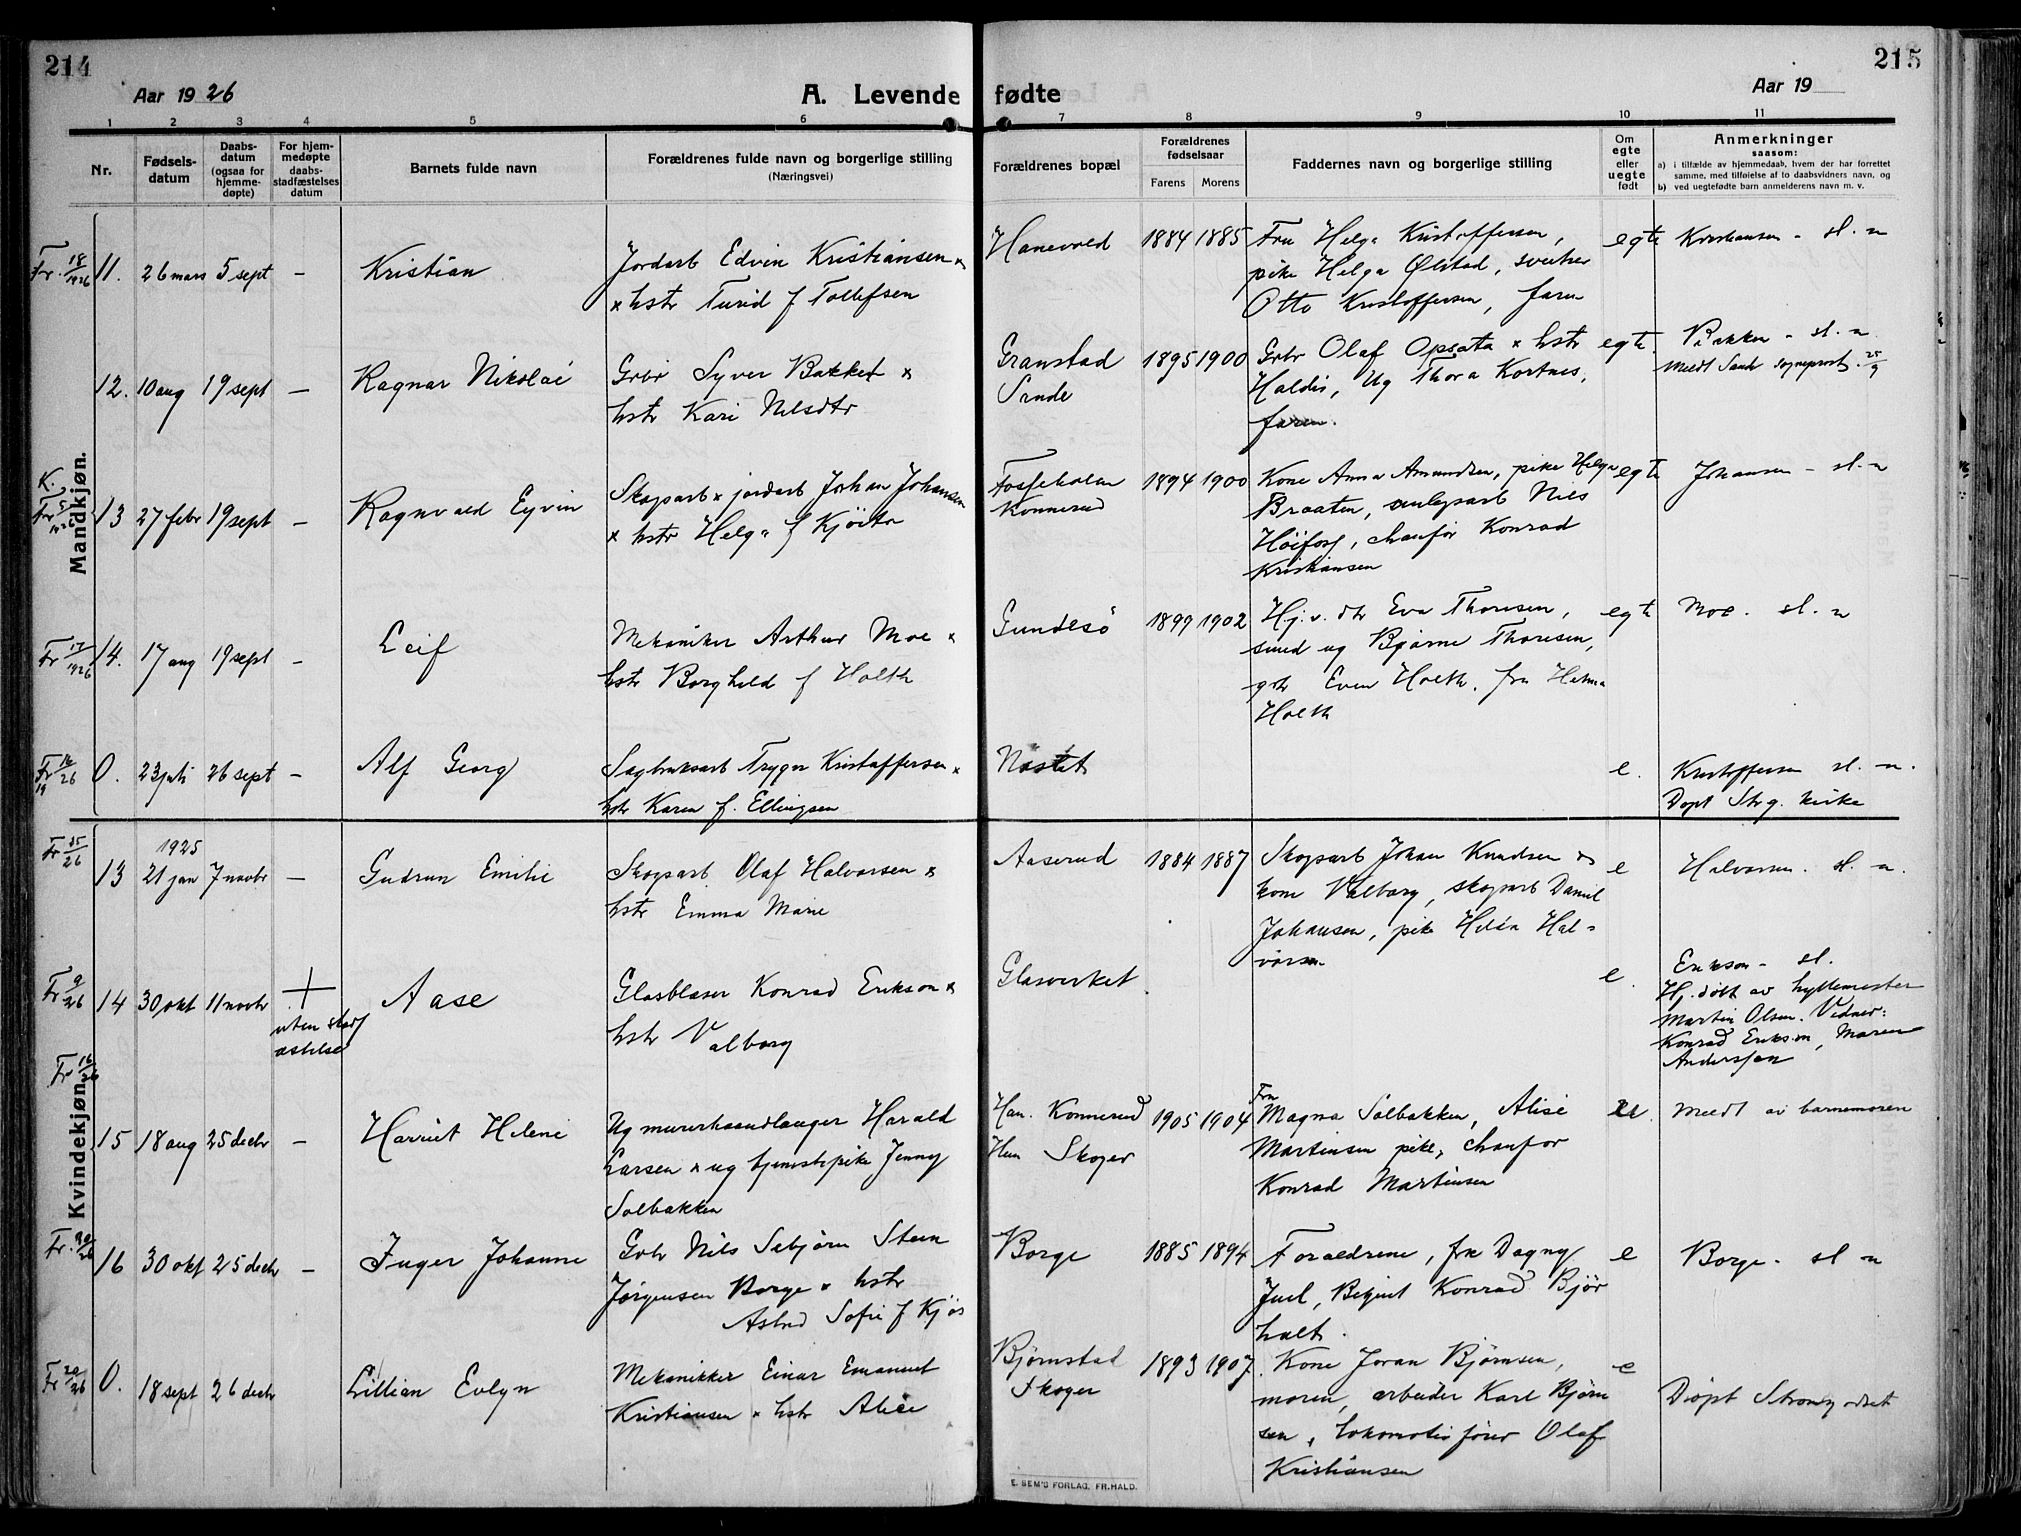 214
Aar 1926
A. Levende fødte
Aar 19
215
1 2 3 4 5 6 7 8 9 10 11
Nr.
Fødsels-
datum
Daabs-
datum
(ogsaa for
hjemme-
døpte)
For hjem-
medøpte
daabs-
stadfæstelses
datum
Barnets fulde navn
Forældrenes fulde navn og borgerlige stilling
(Næringsvei)
Forældrenes bopæl
Forældrenes
fødselsaar
Farens Morens
Faddernes navn og borgerlige stilling
Om
egte
eller
uegte
født
Anmerkninger
saasom:
a) i tilfælde av hjemmedaab, hvem der har forrettet
samme, med tilføielse af to daabsvidners navn, og
b) ved uegtefødte barn anmelderens navn m. v.
Mandkjøn.
Fr. 18/1926 11. 26 mars 5 sept – Kristian
Jordarb Edvin Kristiansen x
x hstr Turid f Tollefsen
Hanevold 1884 1885
Fru Helga Kristoffersen,
pike Helga Ølstad, sveitser
Otto Kristoffersen, faren
egte Kristiansen – sl. n
12. 10 aug 19 sept – Ragnar Nikolai
Grbr Syver Bakket x
hstr Kari Nilsdtr
Granstad
Sande
1895 1900
Grbr Olaf Opsata x hstr
Haldis, Ug Thora Kortnes,
faren.
egte. Bakken – sl. n
Meldt Sande sogneprest. 25/9
K.
Fr 13 27 febr 19 sept – Ragnvald Eyvin
Skogsarb x jordarb Johan Johansen
x hstr Helga f Kjöstr
Fossesholm
Konnerud
1894 1900
Kone Anna Amundsen, pike Helga
Braaten, anlegsarb Nils
Høifoss, chaufør Konrad
Kristiansen
egte Johansen – sl. n
Fr 17/1926 14. 17 aug 19 sept – Leif
Mekaniker Arthur Moe x
hstr Borghild f Holth
Gundesö 1899 1902
Hj. v. dtr Eva Thoresen,
smed ug Bjarne Thoresen,
gbr Even Holth. fru Helma
Holth
egte Moe. sl. n
Fr 16/26 19 0. 23 juli 26 sept – Alf Georg
Sagbruksarb Trygve Kristoffersen x
hstr Karen f. Ellingsen
Nøstet
e. Kristoffersen sl. n.
Døpt Strg. kirke
Kvindekjøn.
Fr 25/26 13 1925 21 jan 7 novbr – Gudrun Emilie
Skogsarb Olaf Halvorsen x
hstr Emma Marie
Aaserud 1884 1887
Skogsarb Johan Knudsen x
kone Valborg, skogsarb Daniel
Johansen, pike Hilda Hal-
vorsen
e Halvorsen. sl. n.
Fr 9/26 14 30 okt 11 novbr + uten stadf
æstelse
Aase
Glasblaser Konrad Erikson x
hstr Valborg
Glasverket
e. Erikson – sl.
Hj. døbt av hyttemester
Martin Olsen. Vidner:
Konrad Erikson, Maren
Anderssen
Fr 16/26 15 18 aug 25 decbr – Harriet Helene
Ug murerhaandlanger Harald
Larsen x ug tjenestepike Jenny
Solbakken
Han. Konnerud
Hun Skoger
1905 1904
Fru
Magna Solbakken, Alise
Martinsen pike, chaufør
Konrad Martinsen
u. Meldt av barnemoren
Fr. 20/26 16 30 okt 25 decbr – Inger Johanne
Grbr Nils Sebjørn Steen
Jørgensen Borge x hstr
Astrid Sofie f Kjøs
Borge 1885 1894
Forældrene, frk Dagny
Juel, Betjent Konrad Bjør
holt.
e Borge – sl n
Fr 20/26 0. 18 sept 26 decbr Lillian Evlyn
Mekanikker Einar Emanuel
Kristiansen x hstr Alice
Bjørnstad
Skoger
1893 1907
Kone Joran Bjørnsen,
moren, arbeider Karl Bjørn
sen, Lokomotivfører Olaf
Kristiansen
e Døpt Strømsgodset
E. SEM'S FORLAG, FR.HALD.